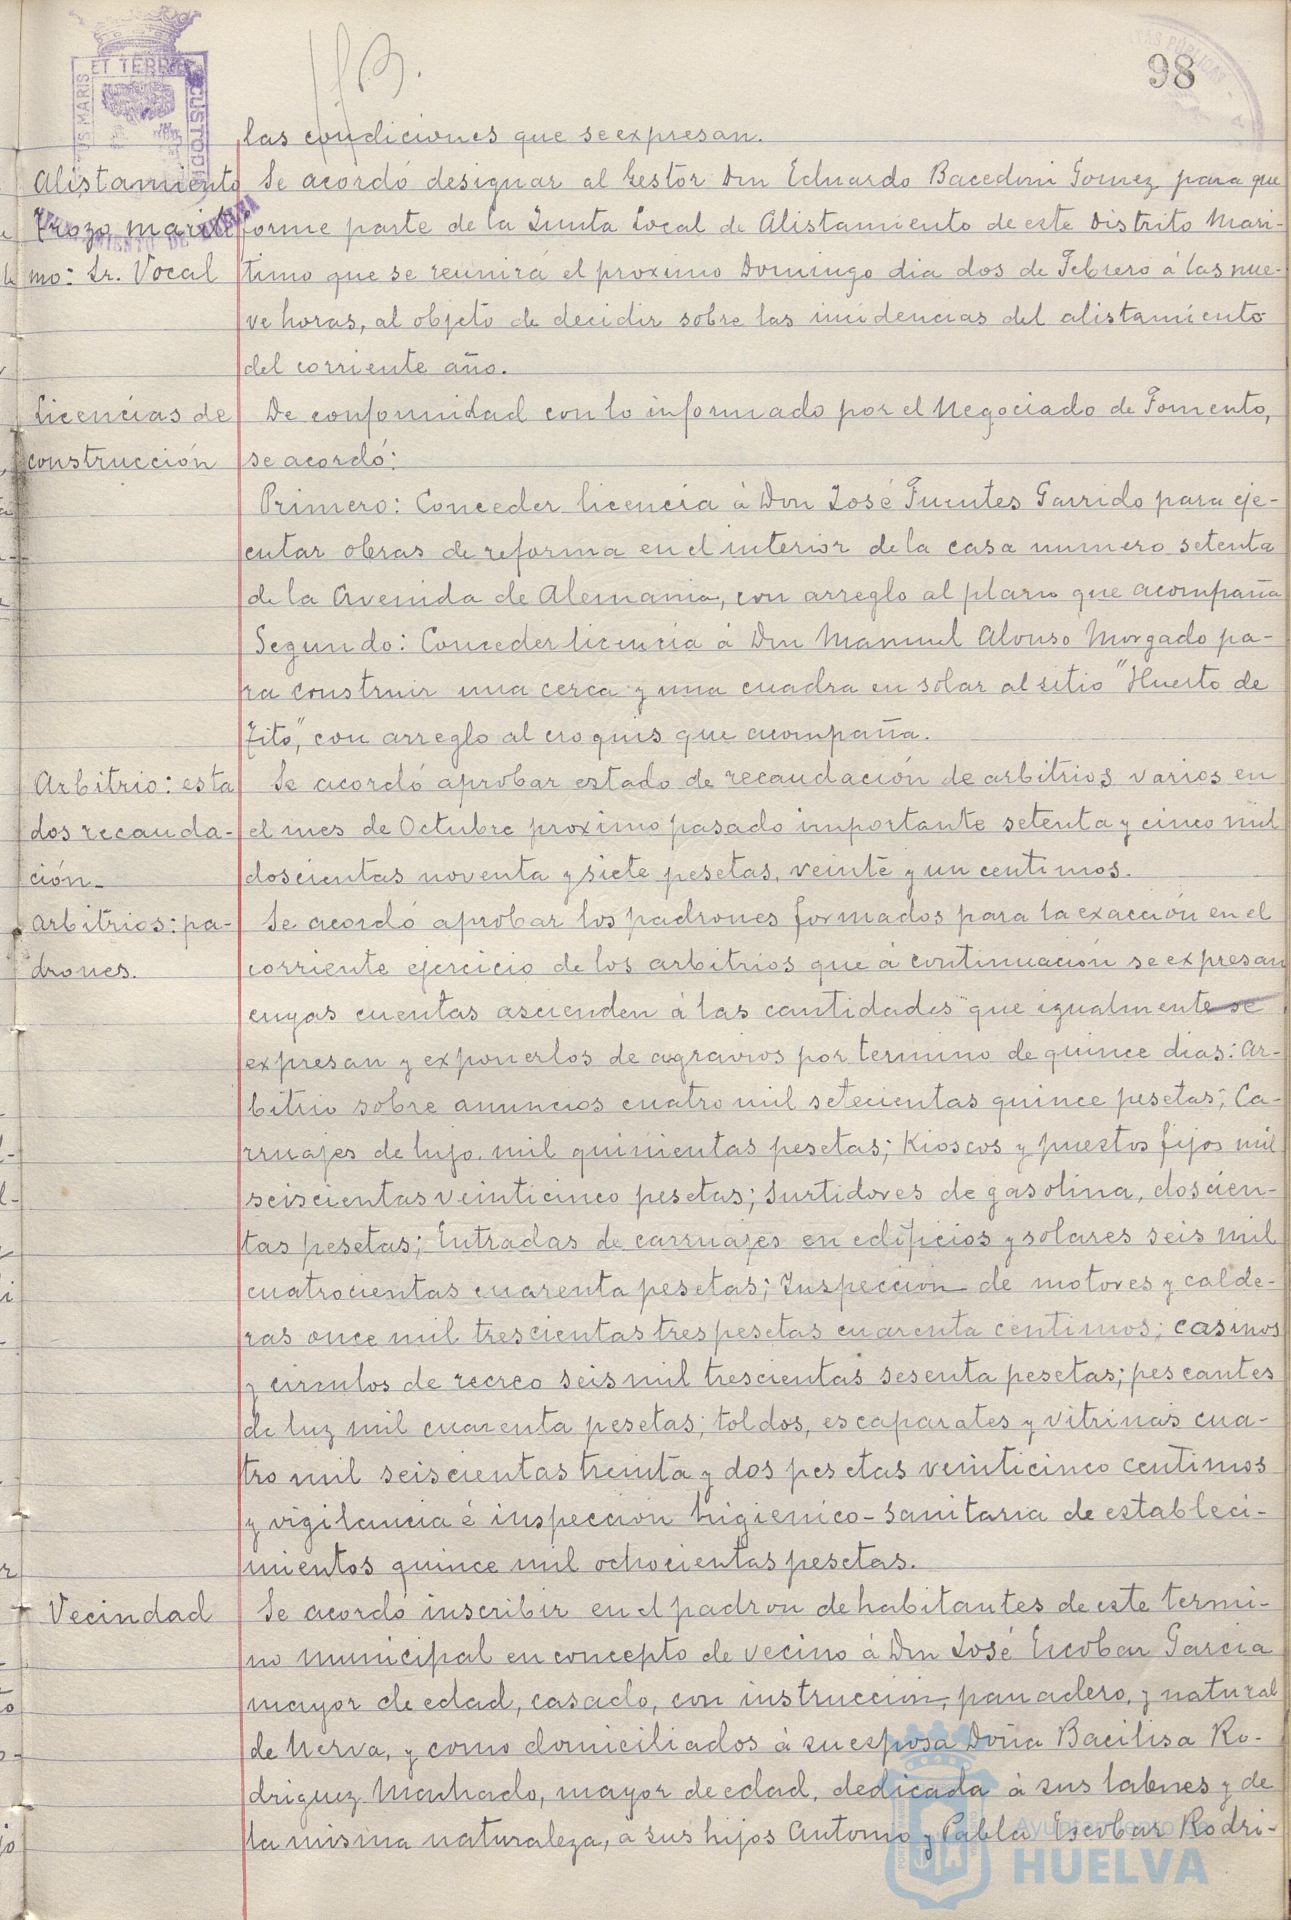 98
las condiciones que se expresan.
Alistamiento
Trozo marití
mo: Sr. Vocal
Se acordó designar al Gestor Don Eduardo Bacedoni Gomez para que
forme parte de la Junta Local de Alistamiento de este Distrito Mari-
timo que se reunirá el proximo Domingo dia dos de Febrero á las nue-
ve horas, al objeto de decidir sobre las incidencias del alistamiento
del corriente año.
Licencias de
construcción
De conformidad con lo informado por el Negociado de Fomento,
se acordó:
Primero: Conceder licencia á Don José Fuentes Garrido para eje-
cutar obras de reforma en el interior de la casa numero setenta
de la Avenida de Alemania, con arreglo al plano que acompaña
Segundo: Conceder licencia á Don Manuel Alonso Morgado pa-
ra construir una cerca y una cuadra en solar al sitio "Huerto de
Tito", con arreglo al croquis que acompaña.
Arbitrio: esta
dos recauda-
ción.
Se acordó aprobar estado de recaudación de arbitrios varios en
el mes de Octubre proximo pasado importante setenta y cinco mil
doscientas noventa y siete pesetas, veinte y un centimos.
Arbitrios: pa-
drones.
Se acordó aprobar los padrones formados para la exacción en el
corriente ejercicio de los arbitrios que á continuación se expresan
cuyas cuentas ascienden á las cantidades que igualmente se
expresan y exponerlos de agravios por termino de quince dias: Ar-
bitrio sobre anuncios cuatro mil setecientas quince pesetas; Ca-
rruajes de lujo. mil quinientas pesetas; Kioscos y puestos fijos mil
seiscientas veinticinco pesetas; Surtidores de gasolina, doscien-
tas pesetas; Entradas de carruajes en edificios y solares seis mil
cuatrocientas cuarenta pesetas; Inspección de motores y calde-
ras once mil trescientas tres pesetas cuarenta centimos; casinos
y circulos de recreo seis mil trescientas sesenta pesetas; pescantes
de luz mil cuarenta pesetas; toldos, escaparates y vitrinas cua-
tro mil seiscientas treinta y dos pesetas veinticinco centimos
y vigilancia é inspección higienico-sanitaria de estableci-
mientos quince mil ochocientas pesetas.
Vecindad
Se acordó inscribir en el padron de habitantes de este termi-
no municipal en concepto de vecino á Don José Escobar Garcia
mayor de edad, casado, con instrucción, panadero, y natural
de Nerva, y como domiciliados á su esposa Doña Bacilisa Ro-
driguez Machado, mayor de edad, dedicada á sus labores y de
la misma naturaleza, a sus hijos Antonio y Pabla Escobar Rodri-
Ayuntamiento de
HUELVA